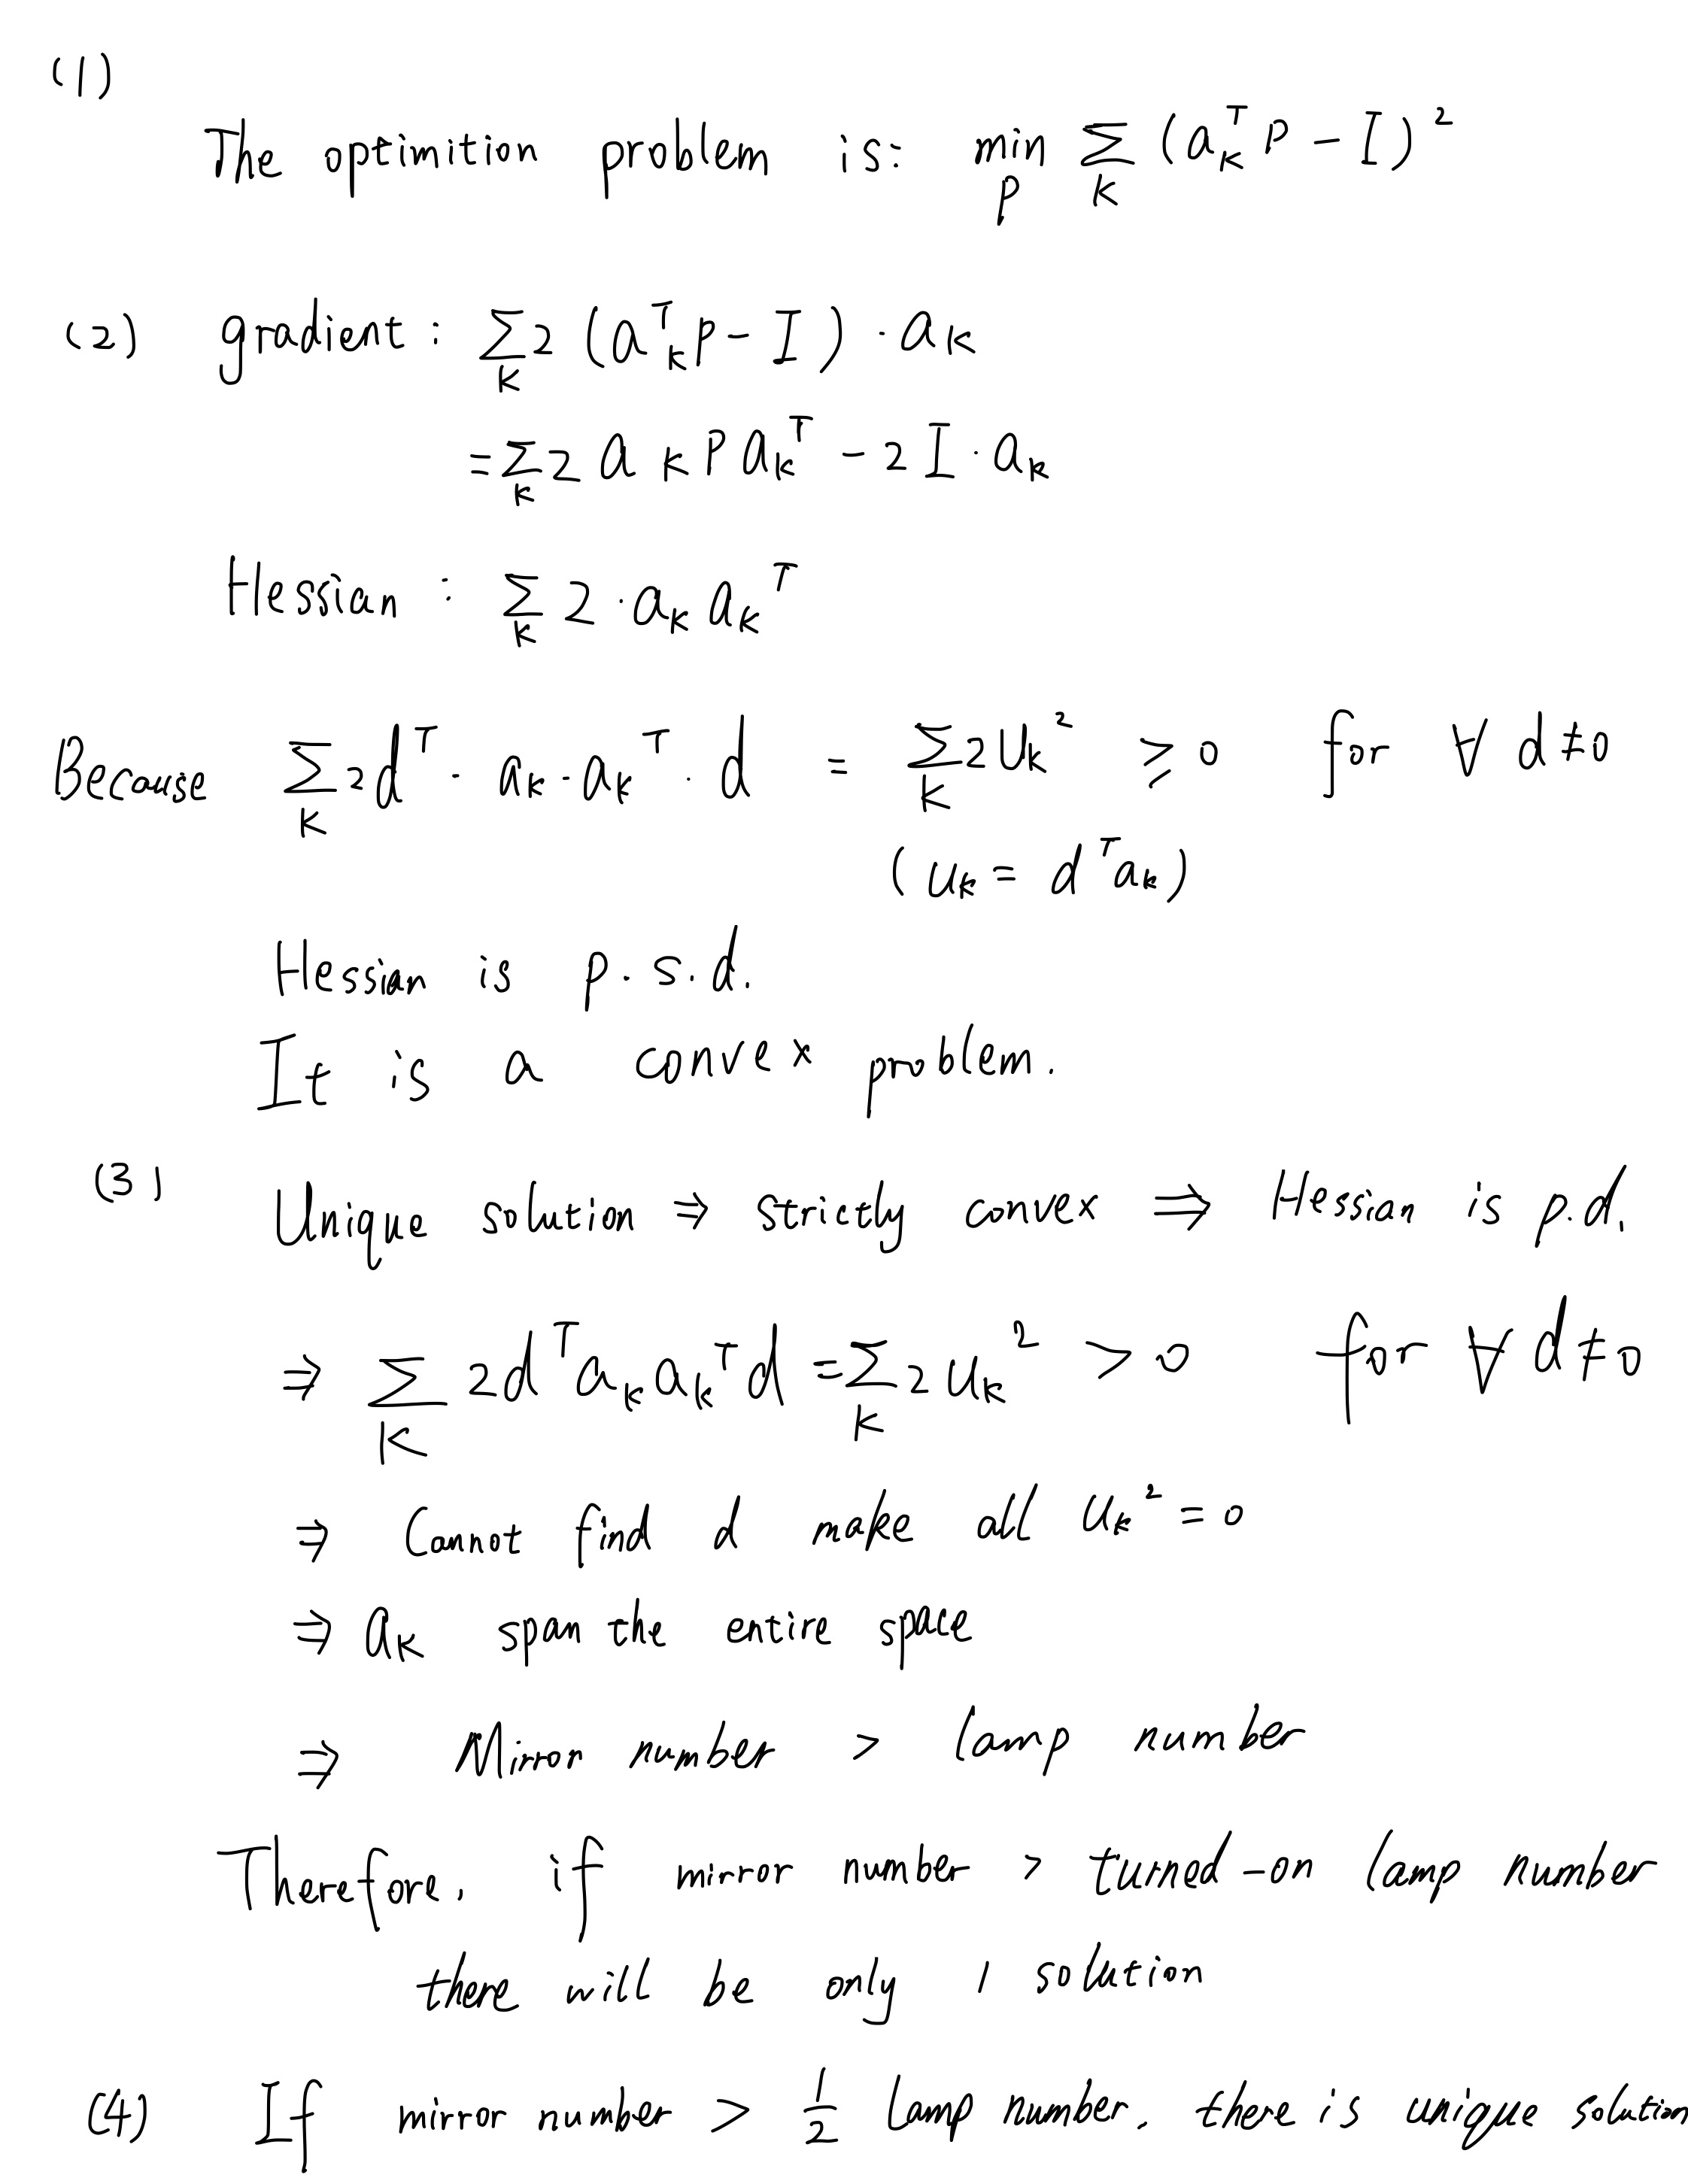 (1)
The optimition problem is: min_p Σ_k (a_k^T p - I)^2
(2) gradient: Σ_k 2 (a_k^T p - I) · a_k
= Σ_k 2 a_k p a_k^T - 2 I · a_k
Hessian : Σ_k 2 · a_k a_k^T
Because Σ_k 2 d^T · a_k · a_k^T · d = Σ_k 2 u_k^2 ≥ 0 for ∀ d ≠ 0
(u_k = d^T a_k)
Hessian is p.s.d.
It is a convex problem.
(3) Unique solution ⇒ strictly convex ⇒ Hessian is p.d.
⇒ Σ_k 2 d^T a_k a_k^T d = Σ_k 2 u_k^2 > 0 for ∀ d ≠ 0
⇒ Cannot find d make all u_k^2 = 0
⇒ a_k span the entire space
⇒ Mirror number > lamp number
Therefore, if mirror number > turned-on lamp number
there will be only 1 solution
(4) If mirror number > 1/2 lamp number. there is unique solution